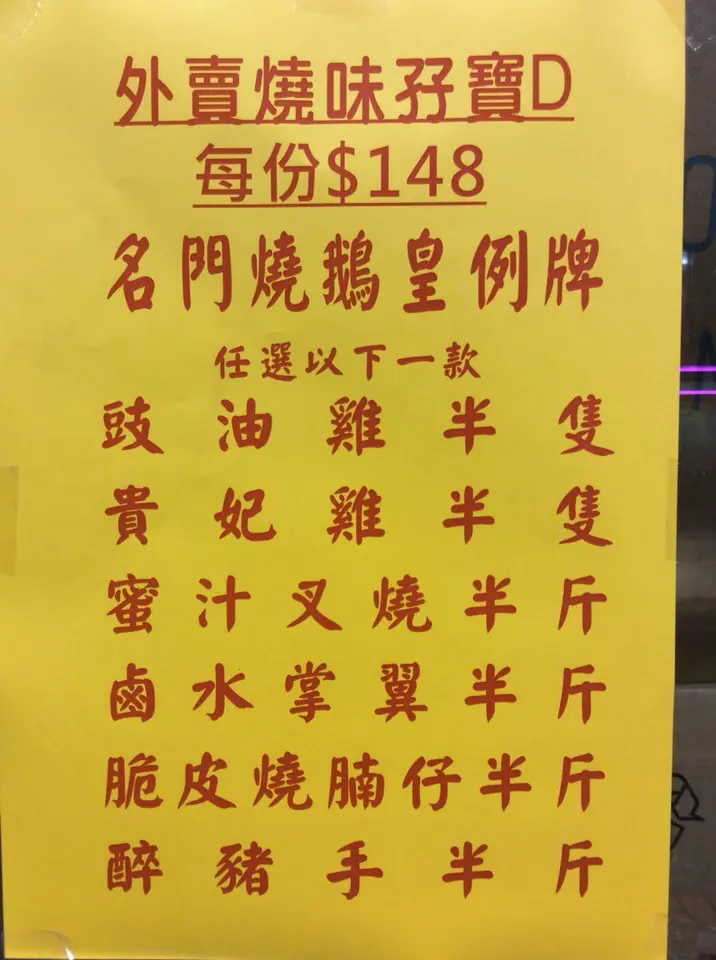 外賣燒味孖寶D
每份$148
名門燒鵝皇例牌
任選以下一款
豉油雞半隻
貴妃雞半隻
蜜汁叉燒半斤
鹵水掌翼半斤
脆皮燒腩仔半斤
醉豬手半斤